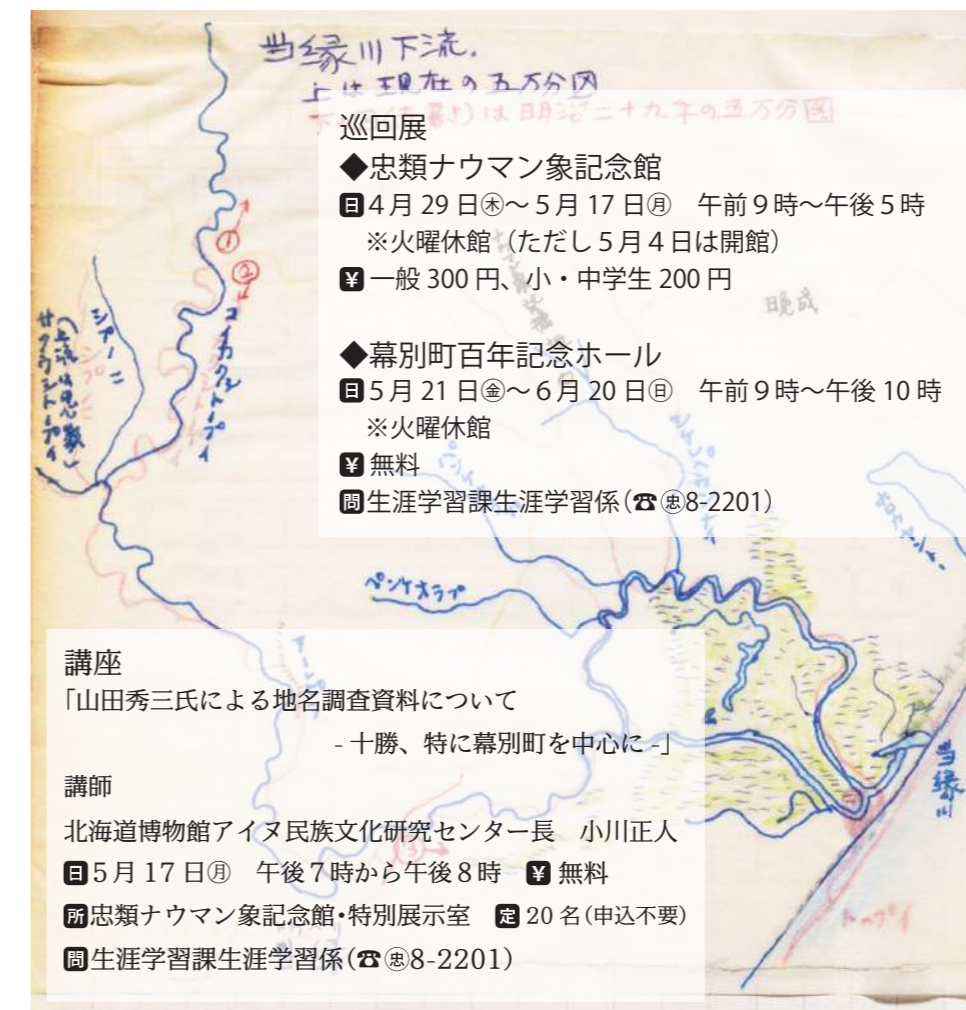 当縁川下流.
上は現在の五万分図
は明治二十九年の五万分図
巡回展
◆忠類ナウマン象記念館
日4月29日㊍～5月17日㊊　午前9時～午後5時
※火曜休館（ただし5月4日は開館）
¥一般300円、小・中学生200円
◆幕別町百年記念ホール
日5月21日㊎～6月20日㊐　午前9時～午後10時
※火曜休館
¥無料
問生涯学習課生涯学習係（☎㊥8-2201）
晩成
①
②
コイカクシトープイ
シプーニ
サクウシトープイ
ペンケオラプ
講座
「山田秀三氏による地名調査資料について
- 十勝、特に幕別町を中心に -」
講師
北海道博物館アイヌ民族文化研究センター長　小川正人
日5月17日㊊　午後7時から午後8時　¥無料
所忠類ナウマン象記念館・特別展示室　定20名（申込不要）
問生涯学習課生涯学習係（☎8-2201）
③
当縁川
トープイ